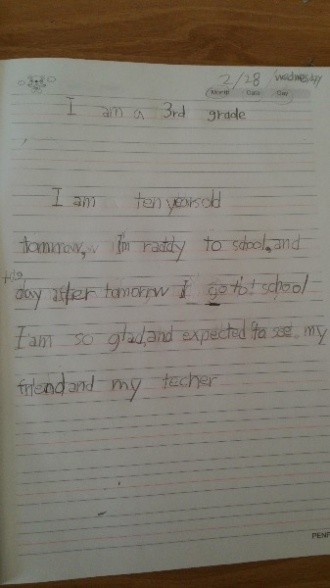 2/28 Wednesday
Month Date Day
I am a 3rd grade
I am ten years old
tommraw, I'm raddy to school, and
the
day after tomorrow I go to! school
I am so glad, and expected to see my
friend and my techer